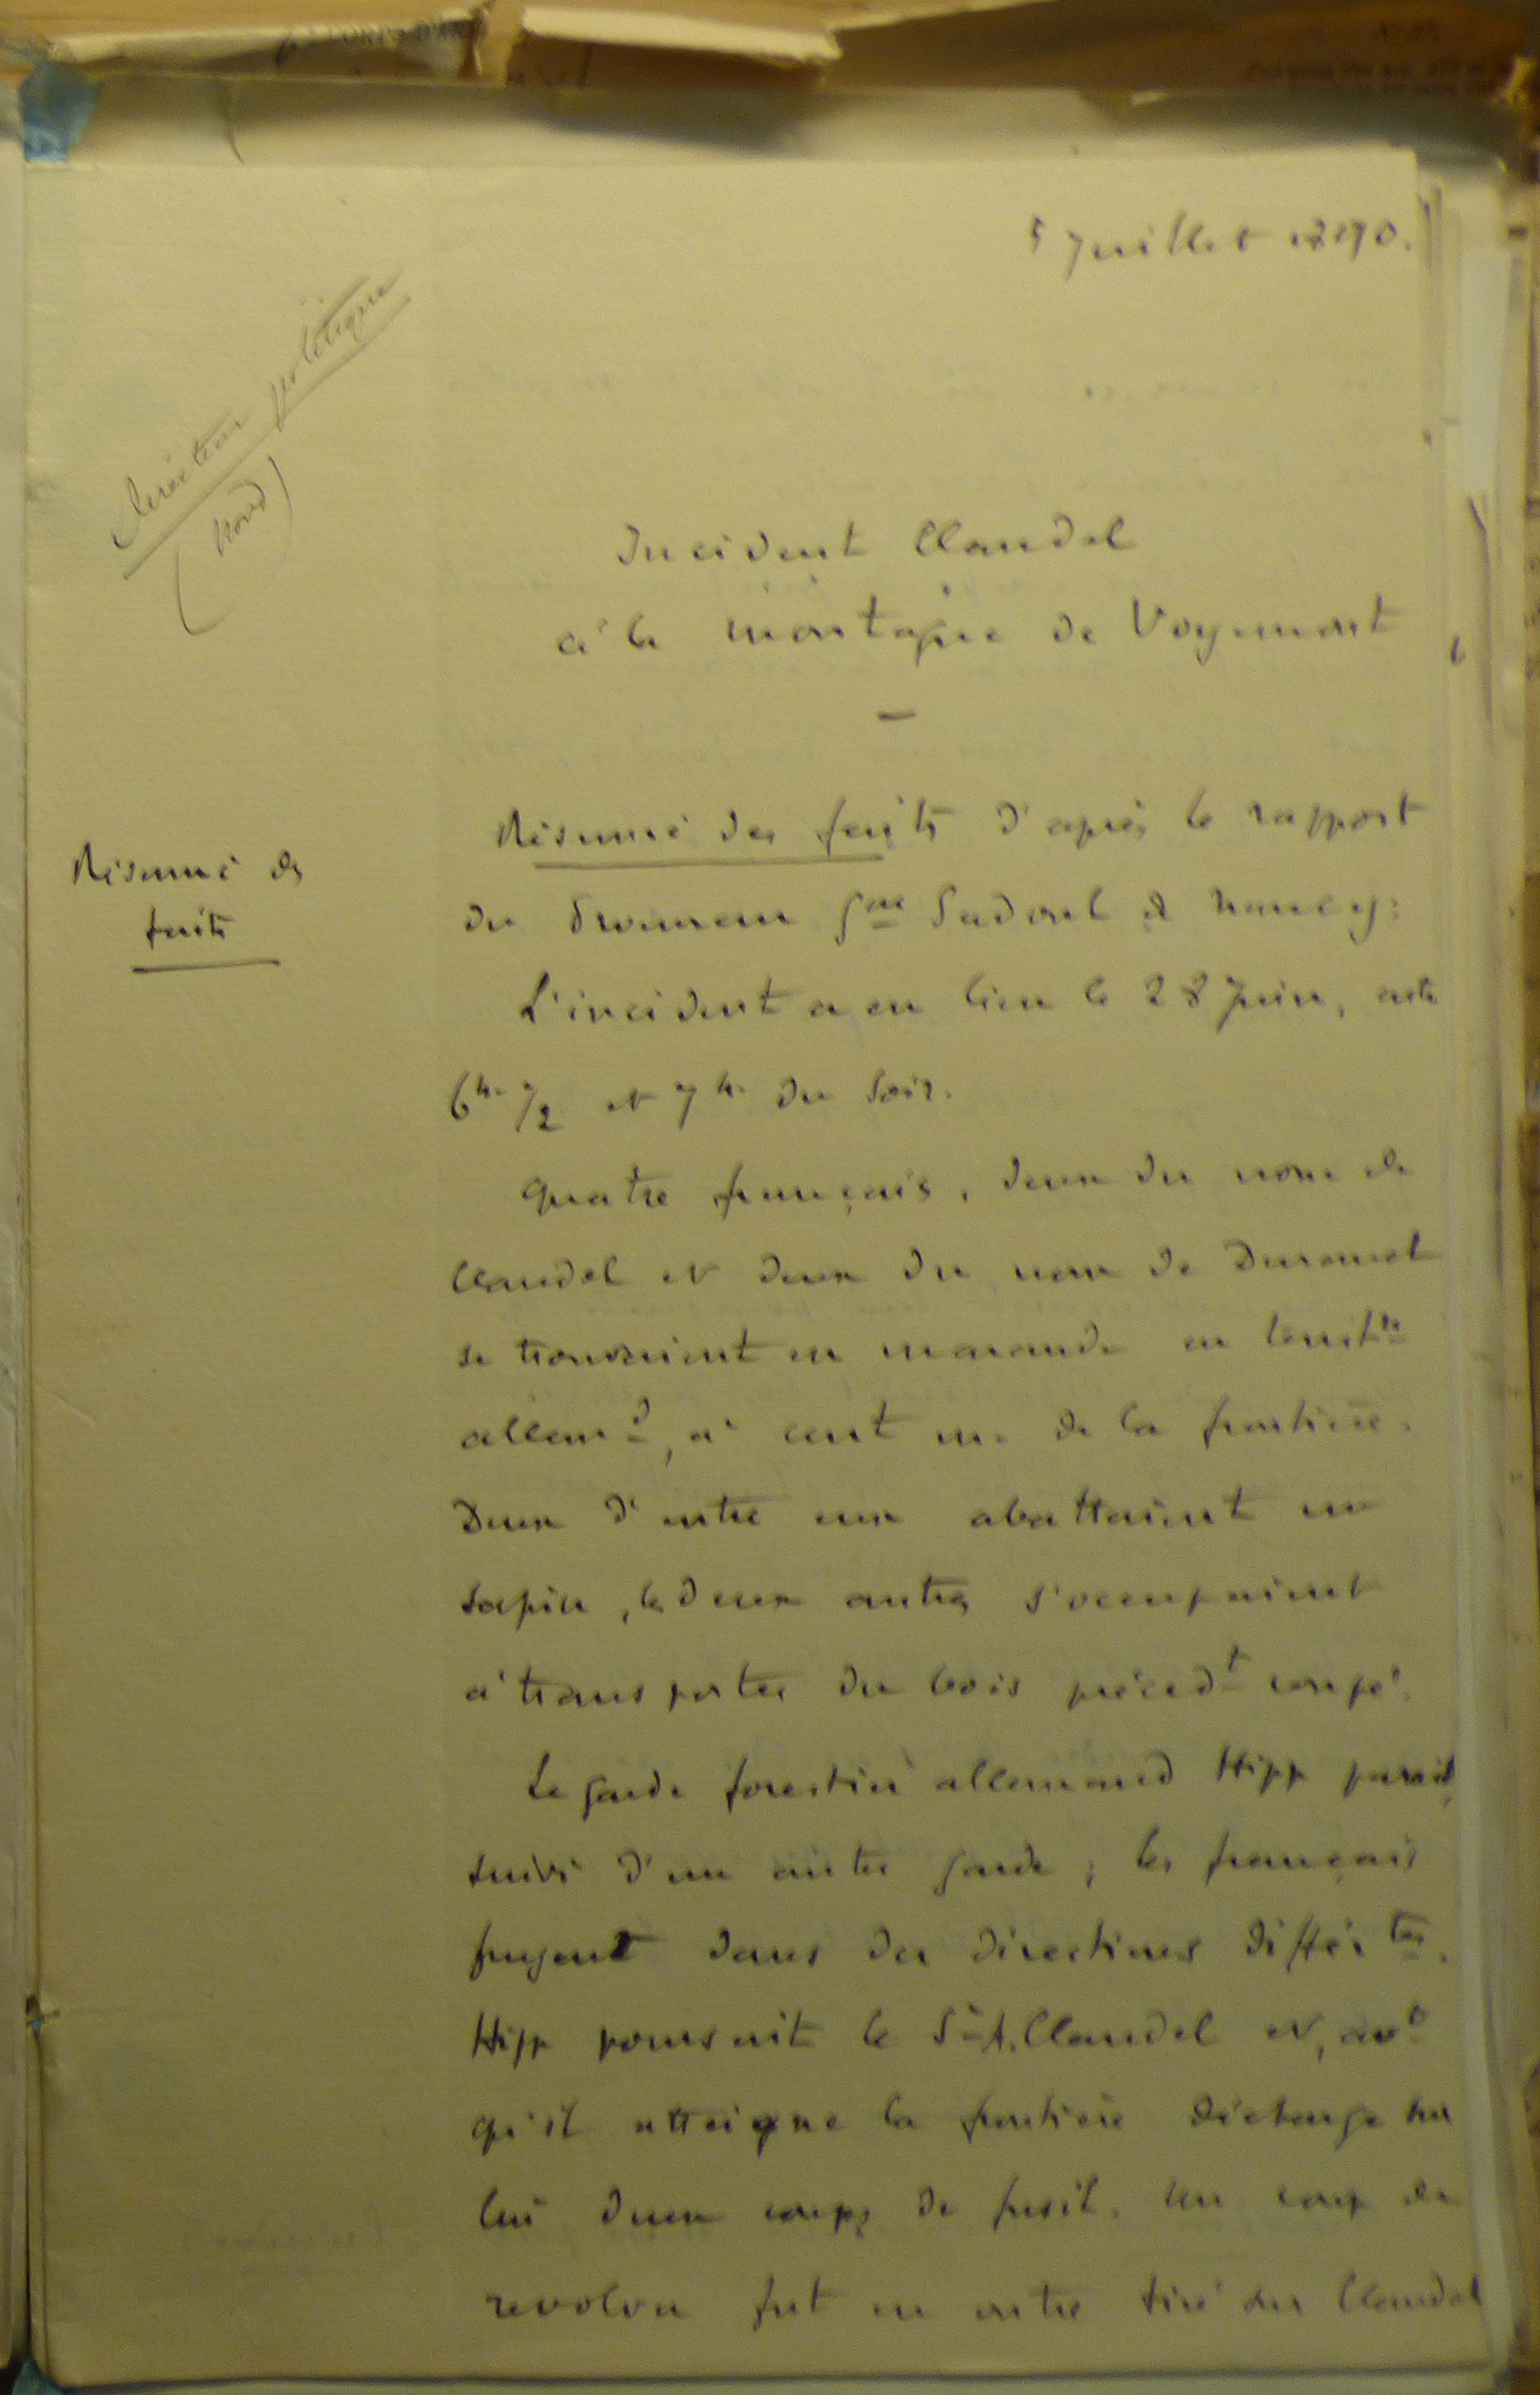 5 Juillet 1890.
Direction politique
(Nord)
Incident Claudel
à la montagne de Voyemont
—
Résumé des faits
Résumé des faits d'après le rapport
du Procureur Gal Sadoul de Nancy:
L'incident a eu lieu le 28 Juin, entre
6h. 1/2 et 7h. du soir.
Quatre français, deux du nom de
Claudel et deux du nom de
se trouvaient en maraude en territre
allemd, à cent m. de la frontière.
Deux d'entre eux abattaient un
sapin, les deux autres s'occupaient
à transporter du bois précédt coupé.
Le garde forestier allemand Hipp parait,
suivi d'un autre garde; les français
fuyent dans des directions différtes.
Hipp poursuit le Sr A. Claudel et, avt
qu'il atteigne la frontière décharge sur
lui deux coups de fusil. Un coup de
revolver fut en outre tiré sur Claudel